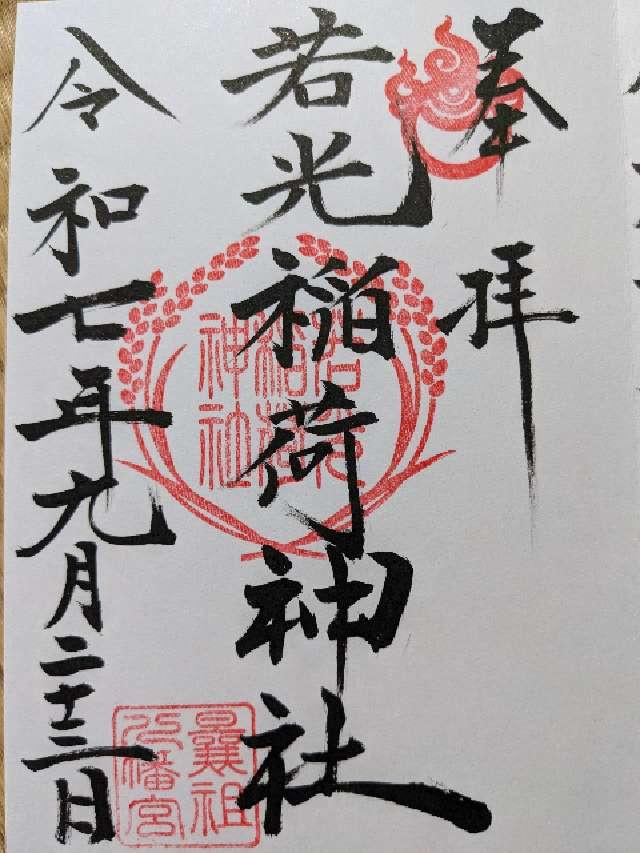 奉拝
若光稲荷神社
令和七年九月二十三日
若光稲荷神社
八幡宮